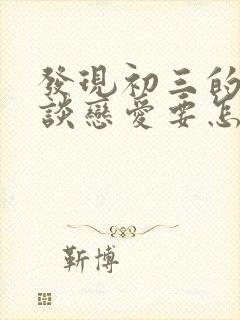 發現初三的
談戀愛要怎
靳博